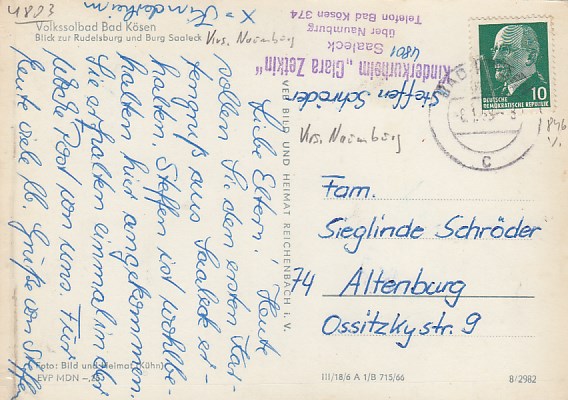 4803
x = Kinderheim
Volkssolbad Bad Kösen
Blick zur Rudelsburg und Burg Saaleck
Krs. Naumburg
Liebe Eltern! Heute
sollen Sie den ersten Kar-
tengruß aus Saaleck er-
halten. Steffen ist wohlbe-
halten hier angekommen.
Sie erhalten einmal in der
Woche Post von uns. Für
heute viele lb. Grüße von Steffen
Foto: Bild und Heimat (Kühn)
EVP MDN
VEB BILD UND HEIMAT REICHENBACH i. V.
Kinderkurheim „Clara Zetkin"
4801 Saaleck
über Naumburg
Telefon Bad Kösen 374
Steffen Schröder
Krs. Naumburg
10
DEUTSCHE
DEMOKRATISCHE REPUBLIK
c
1846
Fam.
Sieglinde Schröder
74 Altenburg
Ossitzkystr. 9
III/18/6 A 1/B 715/66
8/2982